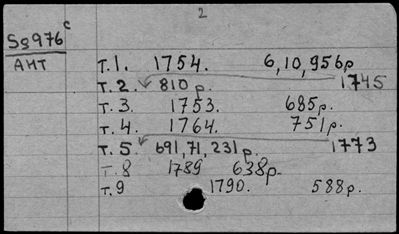 2
Sg976c
АНТ
т.1. 1754. 6,10,956р
т.2. 810р. 1745
т.3. 1753. 685р.
т.4. 1764. 751р.
т.5. 691,71,231р. 1773
т.8 1789 638р.
т.9 1790. 588р.